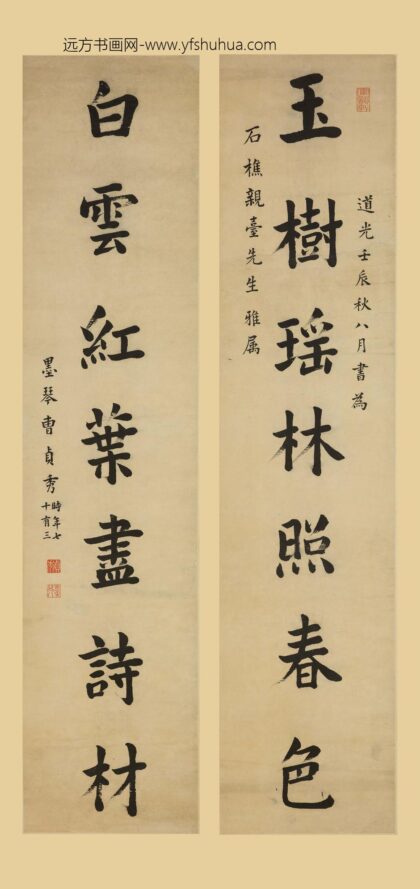 远方书画网-www.yfshuhua.com
道光壬辰秋八月書為
玉樹瑶林照春色
石樵親臺先生雅属
白雲紅葉盡詩材
墨琴曹貞秀
時年七
十有三